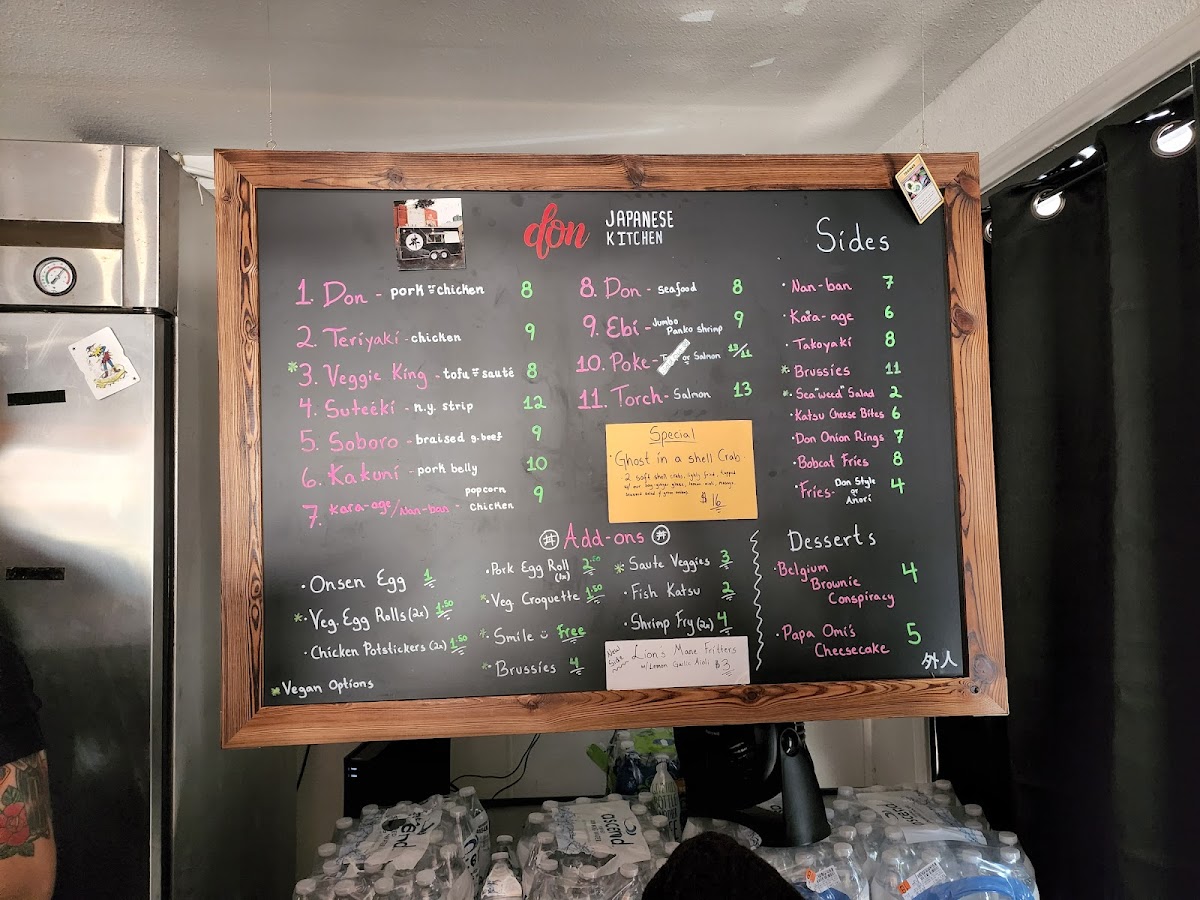 don JAPANESE
KITCHEN
1. Don - pork & chicken 8
2. Teriyaki - chicken 9
*3. Veggie King - tofu & sauté 8
4. Suteéki - n.y. strip 12
5. Soboro - braised g. beef 9
6. Kakuni - pork belly 10
7. Kara-age/Nan-ban - popcorn
chicken 9
8. Don - seafood 8
9. Ebi - Jumbo
Panko shrimp 9
10. Poke - or Salmon 13/11
11. Torch - Salmon 13
Special
Ghost in a shell Crab
2 soft shell crabs, lightly fried, topped
$16
Sides
Nan-ban 7
Kara-age 6
Takoyaki 8
*Brussies 11
*Sea"weed" Salad 2
Katsu Cheese Bites 6
Don Onion Rings 7
Bobcat Fries 8
Fries - Don Style
or
Anori 4
# Add-ons #
Onsen Egg 1
*Veg. Egg Rolls (2x) 1.50
Chicken Potstickers (2x) 1.50
Pork Egg Roll
(1x) 2.50
*Veg. Croquette 1.50
*Smile Free
*Brussies 4
*Saute Veggies 3
Fish Katsu 2
Shrimp Fry (2x) 4
New
Side
Lion's Mane Fritters
w/Lemon Garlic Aioli $3
Desserts
Belgium
Brownie
Conspiracy 4
Papa Omi's
Cheesecake 5
外人
*Vegan Options
ascend
ascend